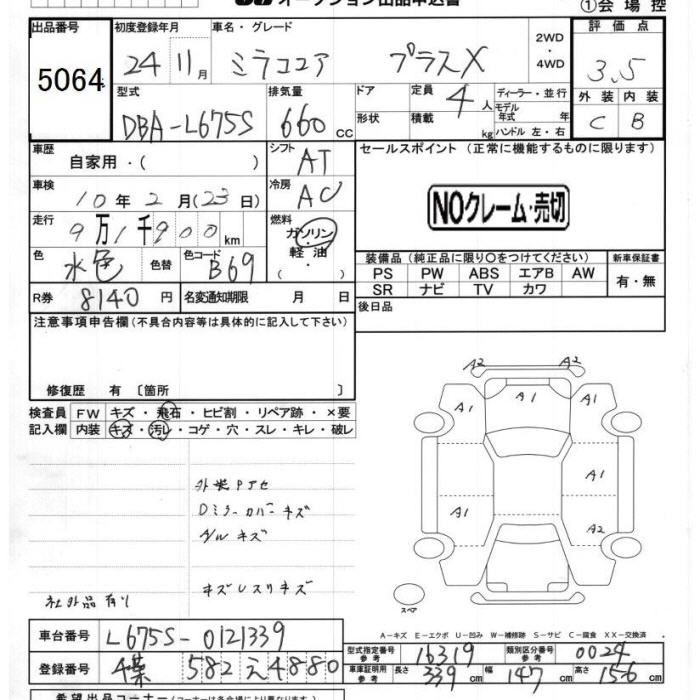 オークション出品申込書
①会場控
出品番号 初度登録年月 車名・グレード 2WD・4WD 評価点
5064 24 11月 ミラココア プラスX 3.5
型式 排気量 ドア 定員 4人 ディーラー・並行 外装 内装
モデル年式 年
DBA-L675S 660cc 形状 積載 kg ハンドル 左・右 C B
車歴 自家用・( ) シフト AT セールスポイント (正常に機能するものに限ります)
車検 10年2月(23日) 冷房 AC
NOクレーム・売切
走行 9万1千900km 燃料 ガソリン・軽油・( )
色 水色 色替 色コード B69
装備品 (純正品に限り○をつけてください) 新車保証書
PS PW ABS エアB AW 有・無
SR ナビ TV カワ
R券 8140円 名変通知期限 月 日
後日品
注意事項申告欄 (不具合内容等は具体的に記入して下さい)
修復歴 有 〔箇所 〕
検査員記入欄 FW キズ・飛石・ヒビ割・リペア跡・×要
内装 キズ・汚レ・コゲ・穴・スレ・キレ・破レ
A2 A2
A1 A1
A1
A1 A2
外装Pアセ
Dミラーカバーキズ
社外品有り
スペア
A-キズ E-エクボ U-凹み W-補修跡 S-サビ C-腐食 XX-交換済
車台番号 L675S-0121339
型式指定番号 参考 16319 類別区分番号 参考 0024
登録番号 582 え 4880
車庫証明用 参考 長さ 339cm 幅 147cm 高さ 156cm
希望出品コーナー